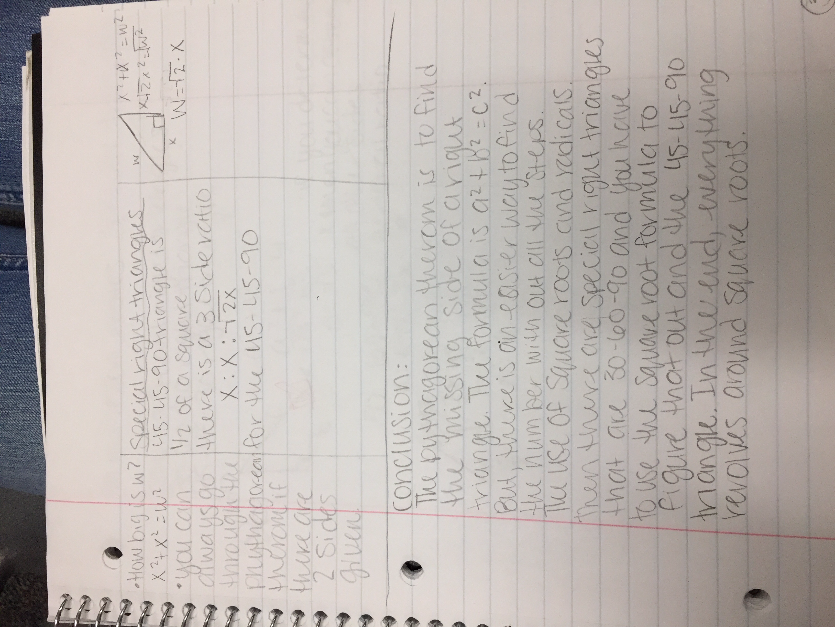 • How big is w?
x²+x²=w²
• you can
always go
through the
phythagorean
therom if
there are
2 sides
given.
Special right triangles
45-45-90 triangle is
1/2 of a square
there is a 3 side ratio
x : x : √2x
for the 45-45-90
w
x
x²+x²=w²
√2x²=√w²
W=√2·x
Conclusion:
The pythagorean therom is to find
the missing side of a right
triangle. The formula is a²+b²=c².
But, there is an easier way to find
the number with out all the steps.
The use of square roots and radicals.
Then there are special right triangles
that are 30-60-90 and you have
to use the square root formula to
figure that out and the 45-45-90
triangle. In the end, everything
revolves around square roots.